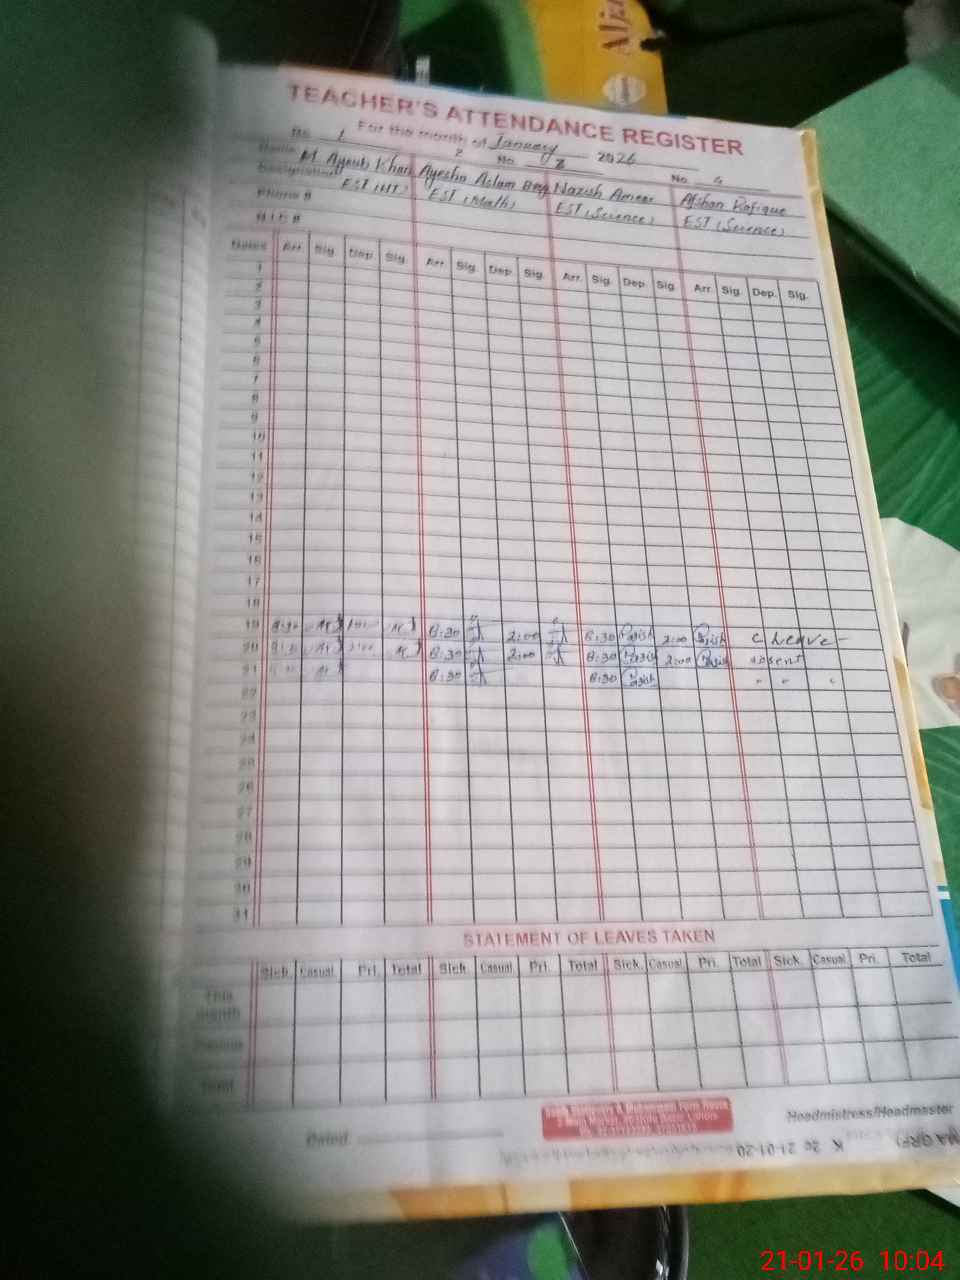 Alja
TEACHER'S ATTENDANCE REGISTER
For the month of January 2026
No. 1 2 No. 3 No. 4
Name M Ayoub Khan Ayesha Aslam Beg Nazish Ameer Afshan Rafique
Designation EST (Math) EST (Science) EST (Science)
Phone #
N.I.C #
Dates Arr. Sig. Dep. Sig. Arr. Sig. Dep. Sig. Arr. Sig. Dep. Sig. Arr. Sig. Dep. Sig.
1
2
3
4
5
6
7
8
9
10
11
12
13
14
15
16
17
18
19 8:30 2:00 8:30 2:00 c Leave
20 8:30 2:00 8:30 2:00 absent
21 8:30 8:30 " " "
22
23
24
25
26
27
28
29
30
31
STATEMENT OF LEAVES TAKEN
Sick. Casual. Pri. Total Sick. Casual. Pri. Total Sick. Casual. Pri. Total Sick. Casual. Pri. Total
This month
Total
Dated
Headmistress/Headmaster
21-01-26 10:04